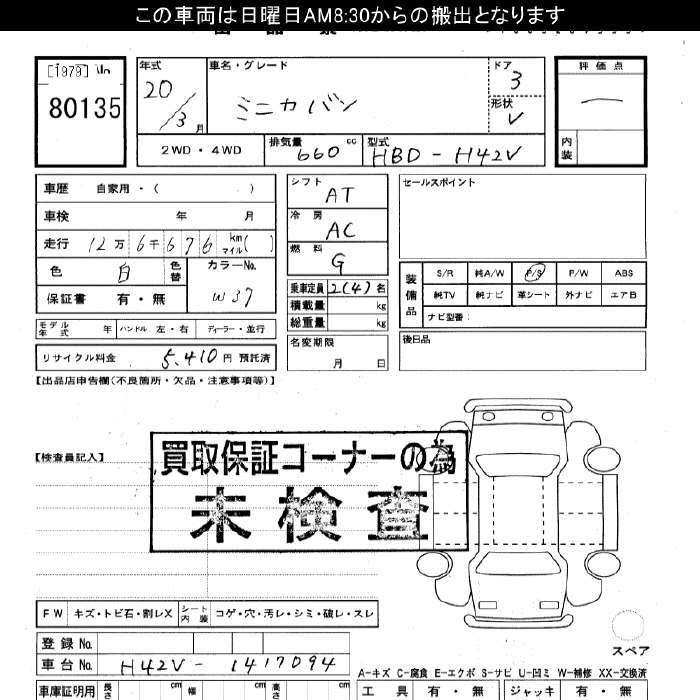 この車両は日曜日AM8:30からの搬出となります
[1979]
80135
年式 車名・グレード ドア 評価点
20/3月 ミニカバン 3
形状 V
2WD・4WD 排気量 660 cc 型式 HBD-H42V 内装
車歴 自家用・( ) シフト AT セールスポイント
車検 年 月 冷房 AC
走行 12万6千676 km マイル( ) 燃料 G
色 白 色替 カラーNo. W37
装備品 S/R 純A/W P/S P/W ABS
保証書 有・無 乗車定員 2(4)名
純TV 純ナビ 革シート 外ナビ エアB
積載量 kg
ナビ型番:
総重量 kg
モデル年式 年 ハンドル 左・右 ディーラー・並行
名変期限 月 日 後日品
リサイクル料金 5,410円 預託済
【出品店申告欄(不良箇所・欠品・注意事項等)】
【検査員記入】
買取保証コーナーの為
未検査
FW キズ・トビ石・割レX シート内装 コゲ・穴・汚レ・シミ・破レ・スレ
スペア
登録No.
車台No. H42V-1417094
A-キズ C-腐食 E-エクボ S-サビ U-凹ミ W-補修 XX-交換済
車庫証明用 長さ cm 幅 cm 高さ cm 工具 有・無 ジャッキ 有・無